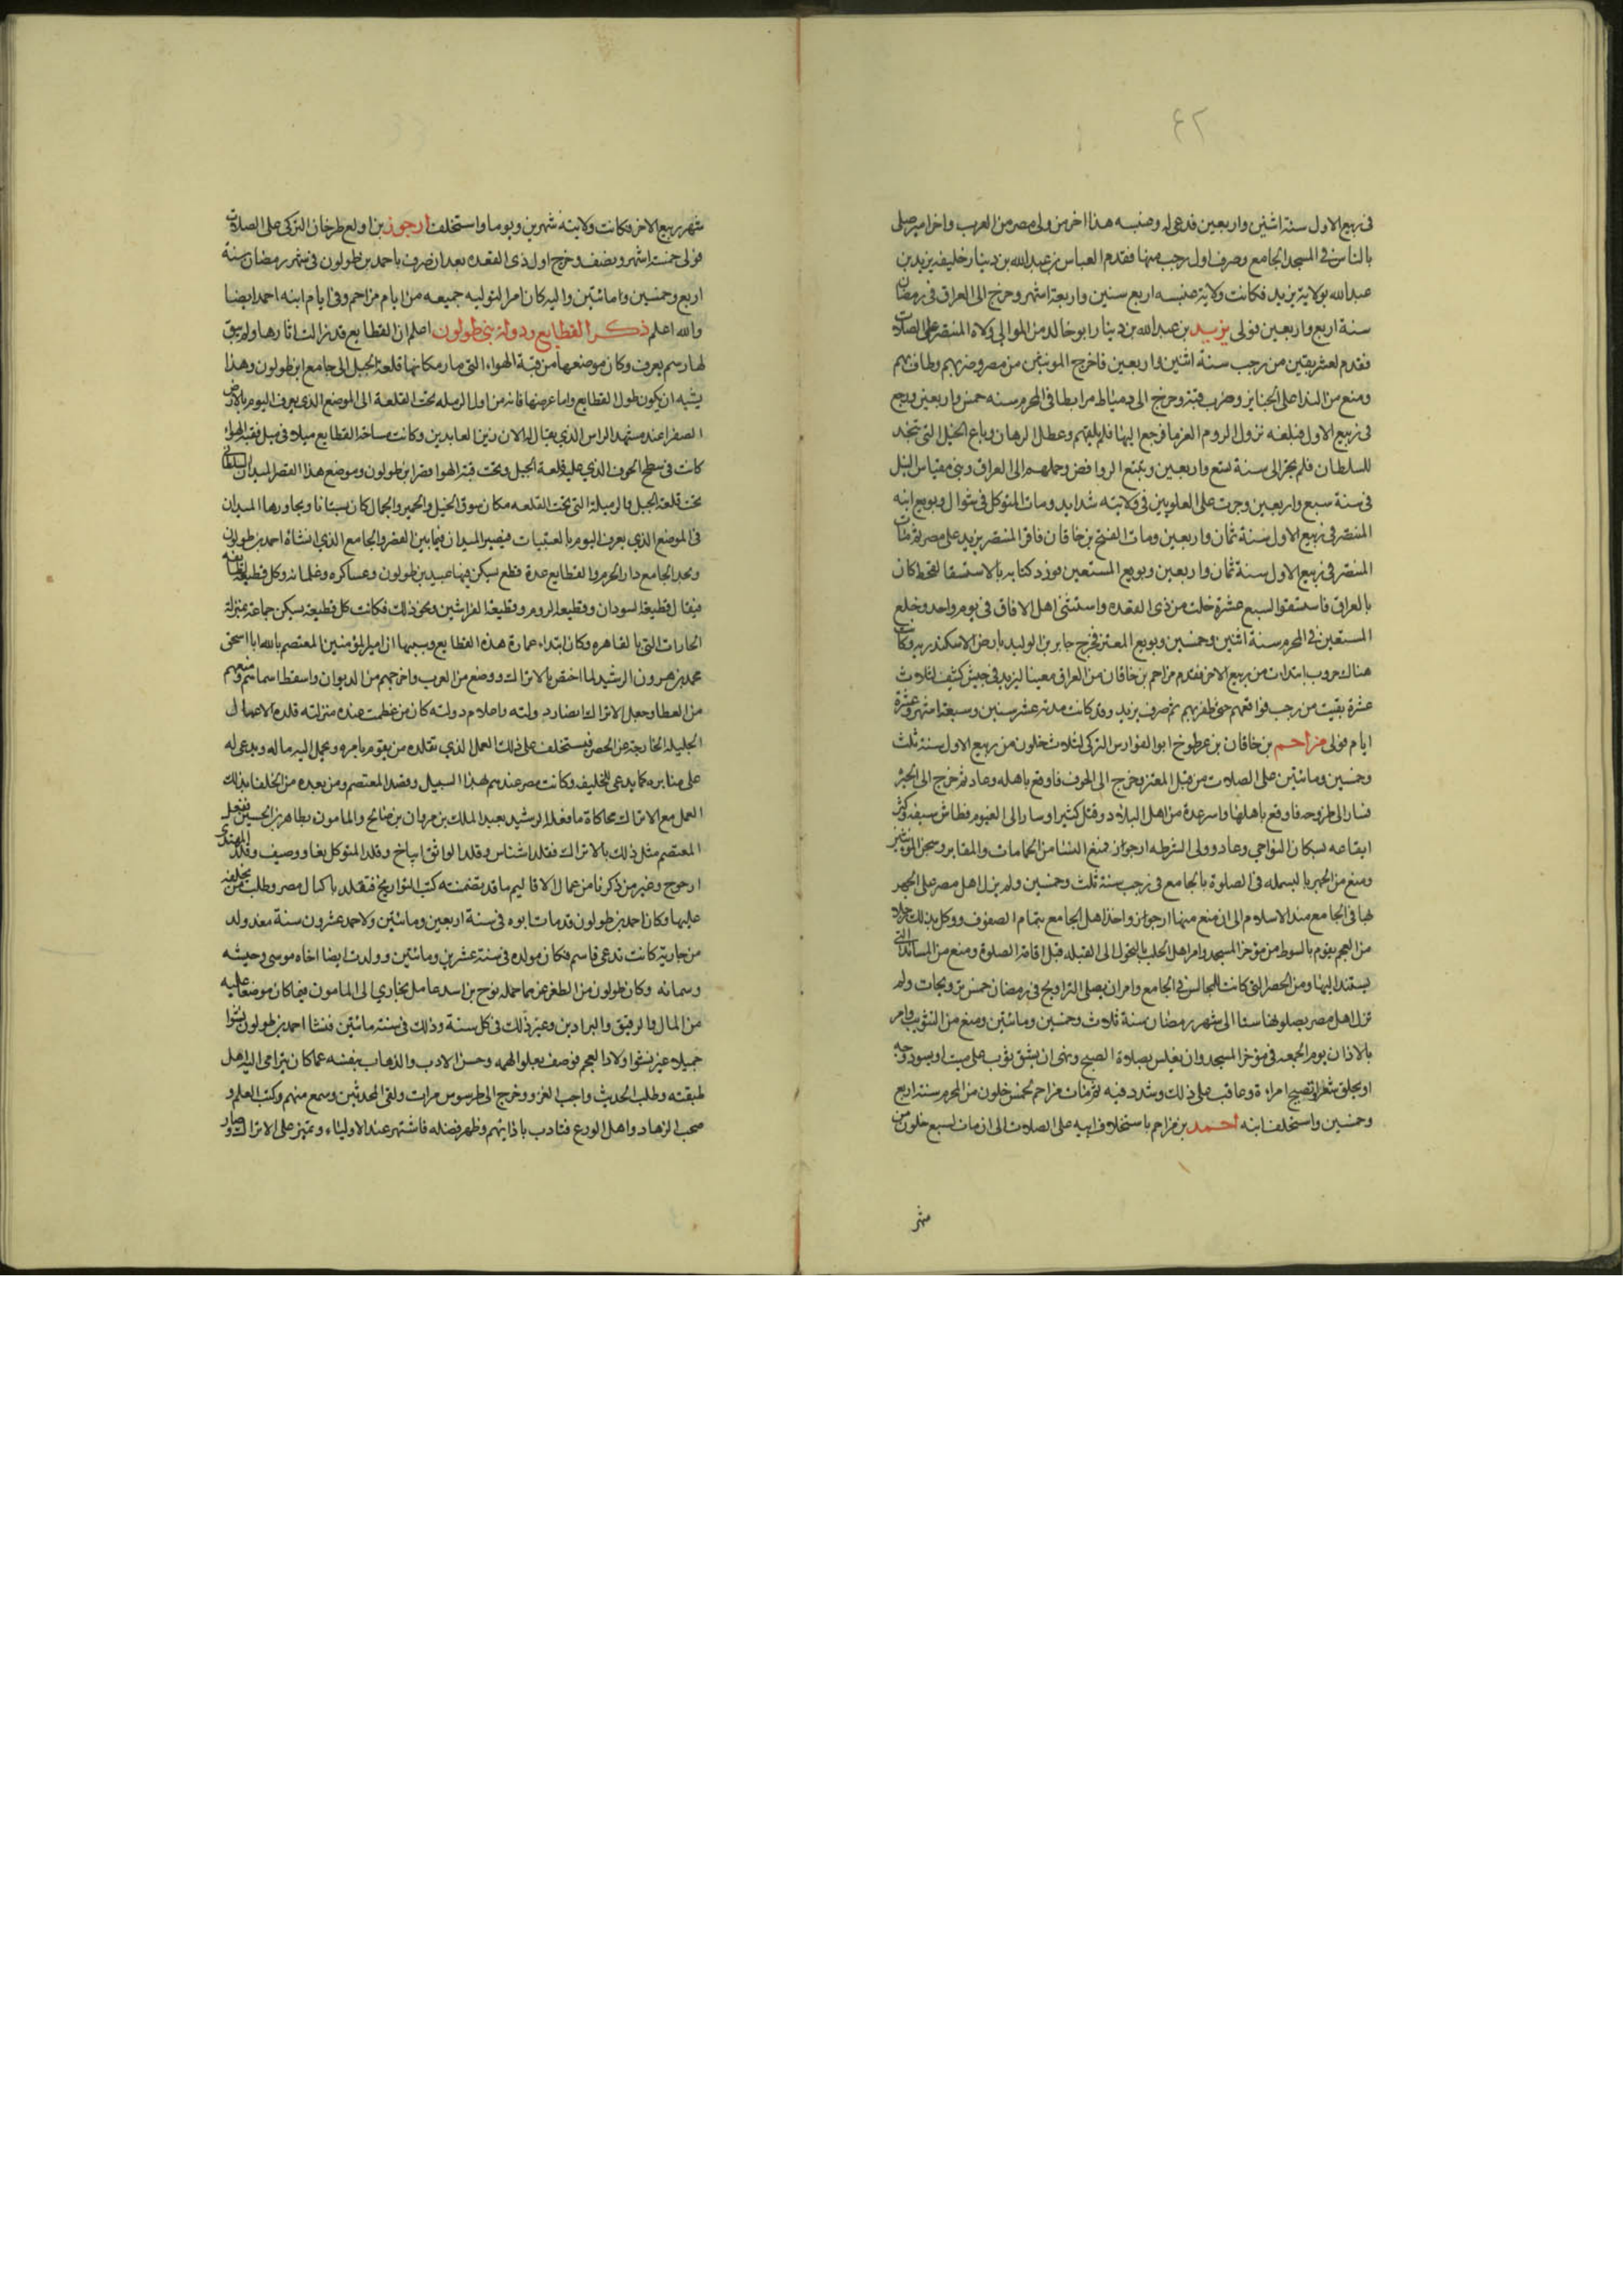 ٤٢
فى ربيع الاول سنة اثنين واربعين فدعى له وعنبسه هذا اخر من ولى مصر من العرب واخر امير صلى
بالناس فى المسجد الجامع وصرف اول رجب منها فقدم العباس بن عبد الله بن دينار خليفه يزيد بن
عبد الله بولاية يزيد فكانت ولاية عنبسه اربع سنين واربعة اشهر وخرج الى العراق فى رمضان
سنة اربع واربعين فولى يزيد بن عبد الله بن دينار ابو خالد من الموالى ولاه المنتصر على الصلات
فقدم لعشر بقين من رجب سنة اثنين واربعين فاخرج المونثين من مصر وضربهم وطاف بهم
ومنع من الندا على الجنايز وضرب فيه وخرج الى دمياط مرابطا فى المحرم سنه خمس واربعين ورجع
فى ربيع الاول فبلغه نزول الروم الفرما فرجع اليها فلم يلقهم وعطل الرهان وباع الخيل التى تتخذ
للسلطان فلم يجر الى سنة تسع واربعين وتتبع الروافض وحملهم الى العراق وبنى مقياس النيل
فى سنة سبع واربعين وجرت على العلويين فى ولايته شدايد ومات المتوكل فى شوال وبويع ابنه
المنتصر فى ربيع الاول سنة ثمان واربعين ومات الفتح بن خاقان فاقر المنتصر يزيد على مصر ثم مات
المنتصر فى ربيع الاول سنة ثمان واربعين وبويع المستعين فورد كتابه بالاستسقا لقحط كان
بالعراق فاستسقوا لسبع عشرة خلت من ذى القعده واستسقى اهل الافاق فى يوم واحد وخلع
المستعين فى المحرم سنة اثنين وخمسين وبويع المعتز فخرج جابر بن الوليد بارض الاسكندريه وكانت
هناك حروب ابتدات من ربيع الاخر فقدم مزاحم بن خاقان من العراق معينا ليزيد فى جيش كثيف لثلاث
عشرة بقيت من رجب فواقعهم حتى ظفر بهم ثم صرف يزيد وقد كانت مدته عشر سنين وسبعة اشهر وعشرة
ايام فولى مزاحم بن خاقان بن عرطوخ ابو الفوارس التركى لثلاث خلون من ربيع الاول سنة ثلث
وخمسين ومائتين على الصلات من قبل المعتز وخرج الى الحوف فاوقع باهله وعاد ثم خرج الى الجيزه
فسار الى طروحه فاوقع باهلها واسر عدة من اهل البلاد وقتل كثيرا وسار الى الفيوم فطاش سيفه وكثر
ايقاعه بسكان النواحى وعاد وولى الشرطه ارجوز فمنع النسا من الحمامات والمقابر وسجن المونثين
ومنع من الجهر بالبسمله فى الصلوة بالجامع فى رجب سنة ثلث وخمسين ولم يزل اهل مصر على الجهر
بها فى الجامع منذ الاسلام الى ان منع منها ارجوز واخذ اهل الجامع بتمام الصفوف ووكل بذلك رجلا
من العجم يقوم بالسوط من مؤخر المسجد وامر اهل الحلب بالتحول الى القبله قبل اقامة الصلوة ومنع من المساند التى
يستند اليها ومن الحصر التى كانت للمجالس فى الجامع وامر ان يصلى التراويح فى رمضان خمس ترويحات ولم
تزل اهل مصر يصلونها ستا الى شهر رمضان سنة ثلاث وخمسين ومائتين ومنع من التثويب وامر
بالاذان يوم الجمعه فى مؤخر المسجد وان يغلس بصلاة الصبح ونهى ان يشق ثوب على ميت او يسود وجه
او يحلق شعر او تصيح امراة وعاقب على ذلك وشدد فيه ثم مات مزاحم لخمس خلون من المحرم سنة اربع
وخمسين واستخلف ابنه احمد بن مزاحم باستخلاف ابيه على الصلات الى ان مات لسبع خلون من
شهر
شهر ربيع الاخر فكانت ولايته شهرين ويوما واستخلف ارجوز بن اولع طرخان التركى على الصلات
فولى خمسة اشهر ونصف وخرج اول ذى القعده بعد ان صرف باحمد بن طولون فى شهر رمضان سنة
اربع وخمسين ومائتين واليه كان امر التوليه جميعه من ايام مزاحم وفى ايام ابنه احمد ايضا
والله اعلم ذكر القطايع ودولة بنى طولون اعلم ان القطايع قد زالت اثارها ولم يبق
لها رسم يعرف وكان موضعها من قبة الهواء التى صار مكانها قلعة الجبل الى جامع ابن طولون وهذا
يشبه ان يكون طول القطايع واما عرضها فانه من اول الرميله تحت القلعة الى الموضع الذى يعرف اليوم بالارض
الصفرا عند مشهد الراس الذى يقال له الان زين العابدين وكانت مساحة القطايع ميلا فى ميل فقبة الهوا
كانت فى سطح الجرف الذى عليه قلعة الجبل وتحت قبة الهوا قصر ابن طولون وموضع هذا القصر الميدان السلطانى
تحت قلعة الجبل والرميلة التى تحت القلعه مكان سوق الخيل والحمير والجمال كانت بستانا ويجاورها الميدان
فى الموضع الذى يعرف اليوم بالقبيبات فيصير الميدان فيما بين القصر والجامع الذى انشاه احمد بن طولون
وبحد الجامع دار الحرم والقطايع عدة قطع يسكن فيها عبيد بن طولون وعساكره وغلمانه وكل قطيعة لطايفه
فيقال قطيعة السودان وقطيعة الروم وقطيعة الفراشين ونحو ذلك فكانت كل قطيعة يسكن جماعة بمنزلة
الحارات التى بالقاهره وكان ابتداء عمارة هذه القطايع وسببها ان امير المؤمنين المعتصم بالله ابا اسحق
محمد بن هرون الرشيد لما اختص بالاتراك ووضع من العرب واخرجهم من الديوان واسقط اسماهم ومنعهم
من العطا وجعل الاتراك انصار دولته واعلام دولته كان من عظمت عنده منزلته قلده الاعمال
الجليله الخارجة عن الحضره فيستخلف على ذلك العمل الذى تقلده من يقوم بامره ويحمل اليه ماله ويدعى له
على منابره كما يدعى للخليفه وكانت مصر عندهم بهذا السبيل وقصد المعتصم ومن بعده من الخلفا بذلك
العمل مع الاتراك محاكاة ما فعله الرشيد بعبد الملك بن صالح والمامون بطاهر بن الحسين ففعل
المعتصم مثل ذلك بالاتراك فقلد اشناس وقلد الواثق ايتاخ وقلد المتوكل بغا ووصيف وقلد المهتدى
ارجوج وغير من ذكرنا من عمال الاقاليم ما قد تضمنته كتب التواريخ فتقلد باكباك مصر وطلب من يخلفه
عليها وكان احمد بن طولون قد مات ابوه فى سنة اربعين ومائتين ولاحمد عشرون سنة منذ ولد
من جاريه كانت تدعى قاسم فكان مولده فى سنة عشرين ومائتين وولدت ايضا اخاه موسى وحبشيه
وسمانه وكان طولون من الطغزغز مما حمله نوح بن اسد عامل بخارى الى المامون فيما كان موظفا عليه
من المال والرقيق والبراذين وغير ذلك فى كل سنة وذلك فى سنة مائتين فنشا احمد بن طولون نشوا
جميلا غير نشو اولاد العجم فوصف بعلو الهمه وحسن الادب والذهاب بنفسه عما كان يترامى اليه اهل
طبقته وطلب الحديث واحب الغزو وخرج الى طرسوس مرات ولقى المحدثين وسمع منهم وكتب العلم و
صحب الزهاد واهل الورع فتادب بادابهم وظهر فضله فاشتهر عند الاولياء وتميز على الاتراك وصار